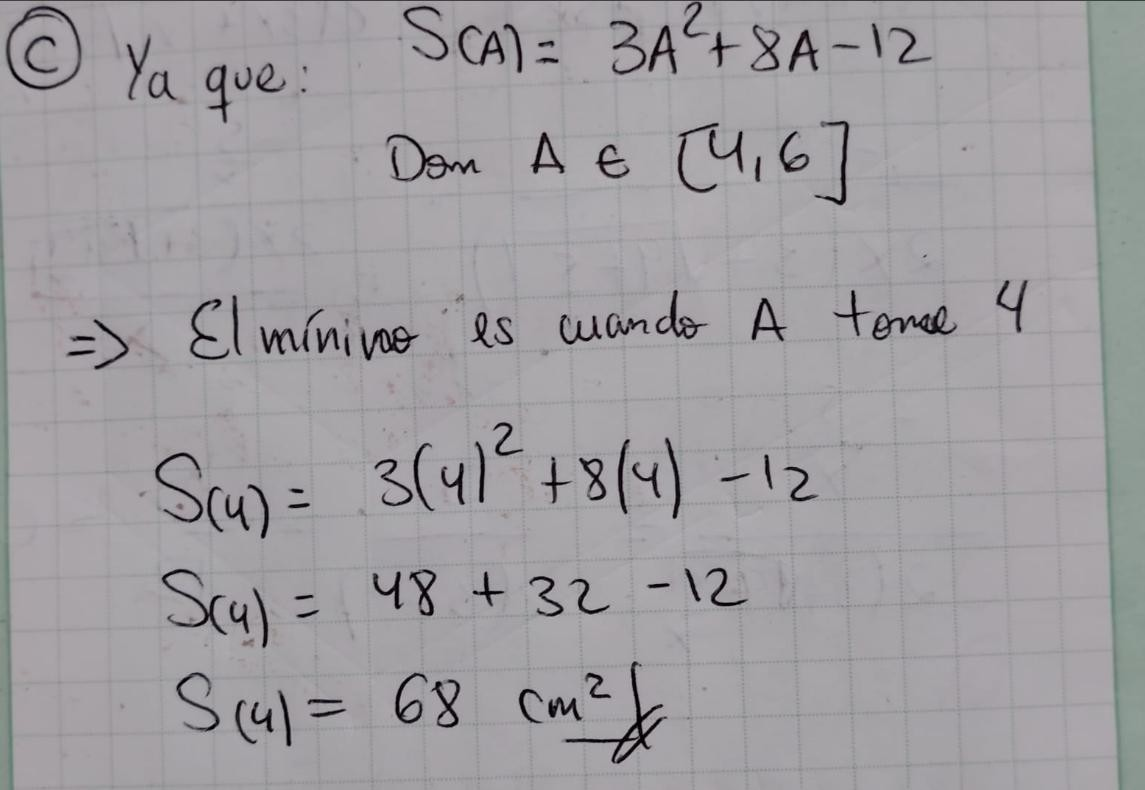 C Ya que: S(A) = 3A² + 8A - 12
Dom A ∈ [4, 6]
=> El mínimo es cuando A tome 4
S(4) = 3(4)² + 8(4) - 12
S(4) = 48 + 32 - 12
S(4) = 68 cm²